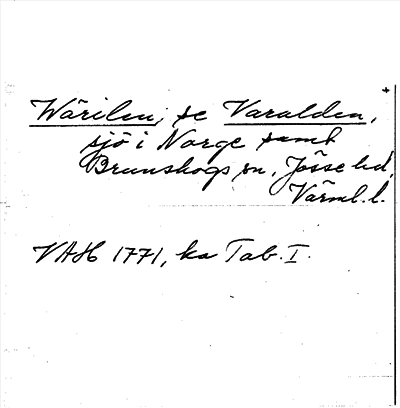 Wärilen, se Varalden,
sjö i Norge samt
Brunskogs sn, Jösse hd,
Värml. l.
VAH 1771, ka Tab. I.